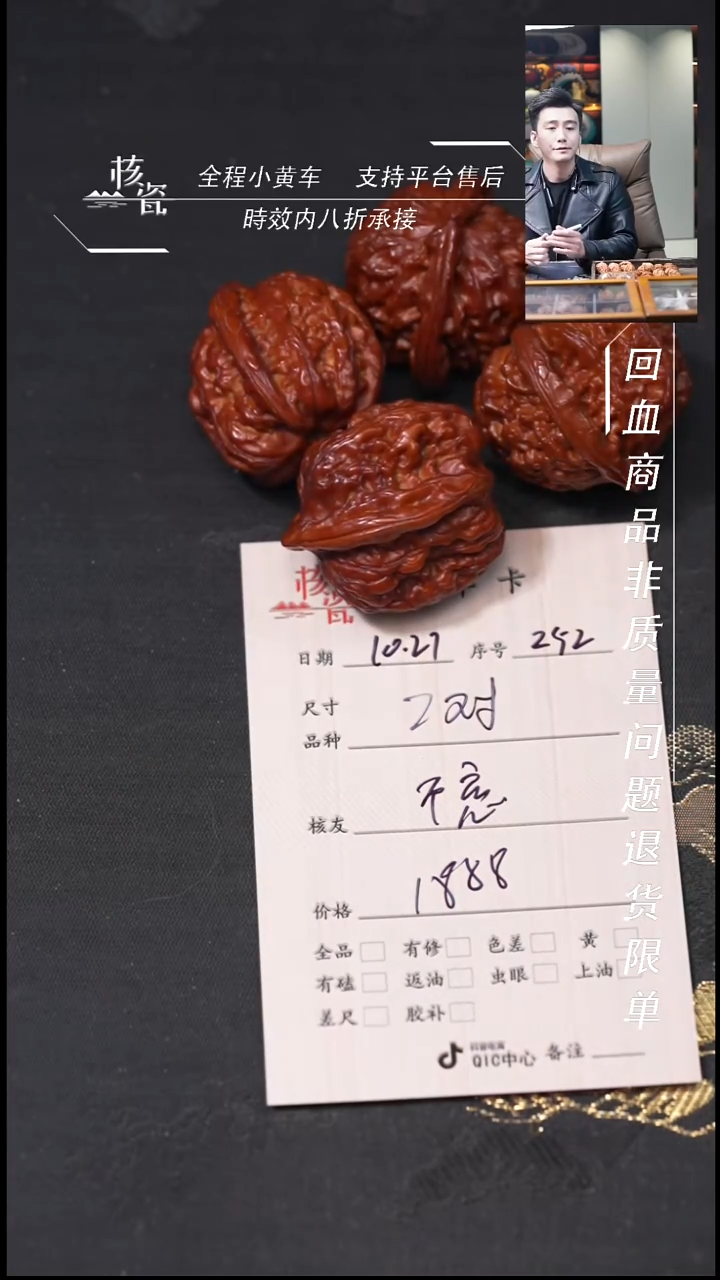 核瓷
全程小黄车 支持平台售后
時效内八折承接
回血商品非质量问题退货限单
核瓷 卡
日期 10.27 序号 252
尺寸 2对
品种
核友
价格 1888
全品 有修 色差 黄
有磕 返油 虫眼 上油
差尺 胶补
QIC中心 备注